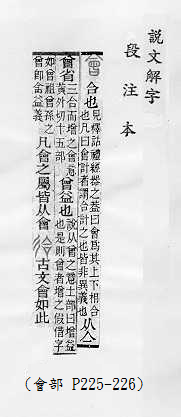 說文解字
段注本
會 合也見釋詁禮經器之葢曰會爲其上下相合也凡曰會計者謂合計之也皆非異義也从亼
曾省三合而增之會意黃外切十五部曾益也說从曾之意土部曰增益也是則曾者增之假借字
如曾祖曾孫之曾卽含益義凡會之屬皆从會㣛古文會如此
(會部 P225-226)